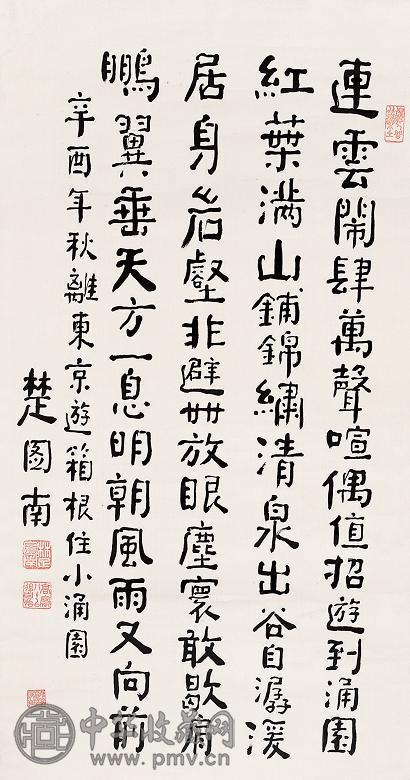 連雲鬧肆萬聲喧偶值招遊到涌園
紅葉满山鋪錦繡清泉出谷自潺湲
居身岩壑非避世放眼塵寰敢歇肩
鵬翼垂天方一息明朝風雨又向前
辛酉年秋離東京遊箱根住小涌園
楚图南
收藏网
www.pmv.cn